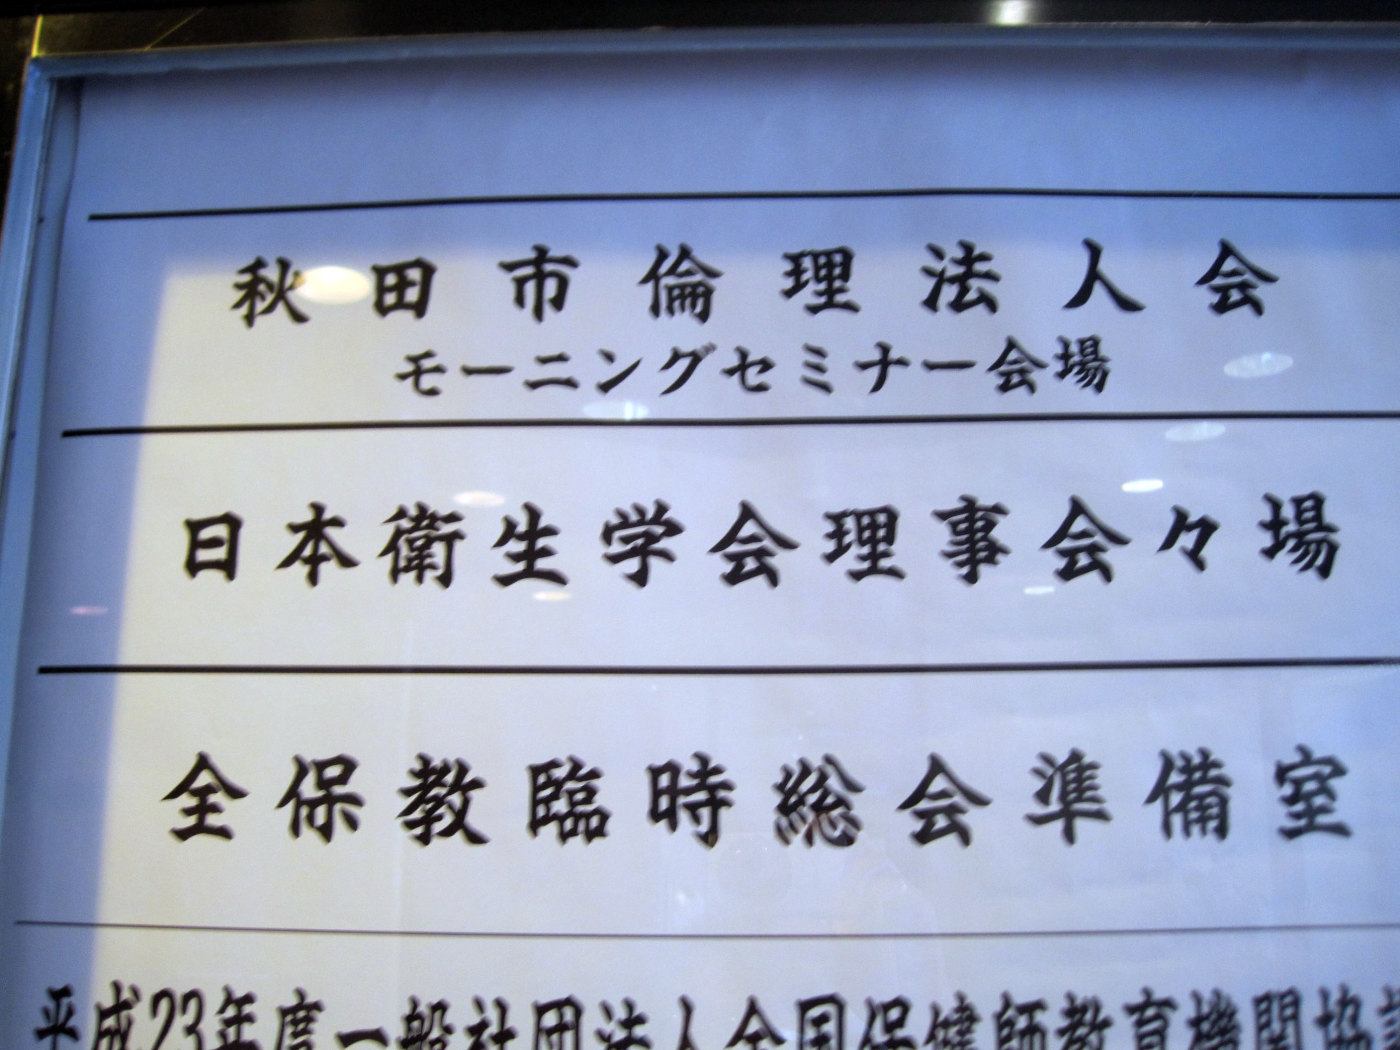 秋田市倫理法人会
モーニングセミナー会場
日本衛生学会理事会々場
全保教臨時総会準備室
平成23年度一般社団法人全国保健師教育機関協議